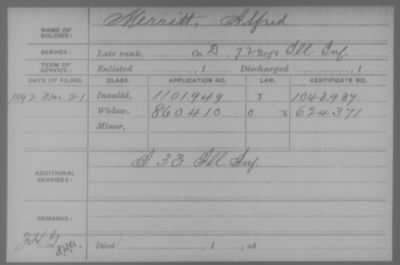 NAME OF SOLDIER: Merritt, Alfred
SERVICE: Late rank, Co. D, 72 Reg't Ill Inf.
TERM OF SERVICE: Enlisted , 1 Discharged , 1
DATE OF FILING. CLASS. APPLICATION NO. LAW. CERTIFICATE NO.
1892 Mar 21 Invalid, 1101949 3 1043987.
Widow, 860410 624371
Minor,
ADDITIONAL SERVICES: 33 Ill Inf.
REMARKS:
Died , 1 , at